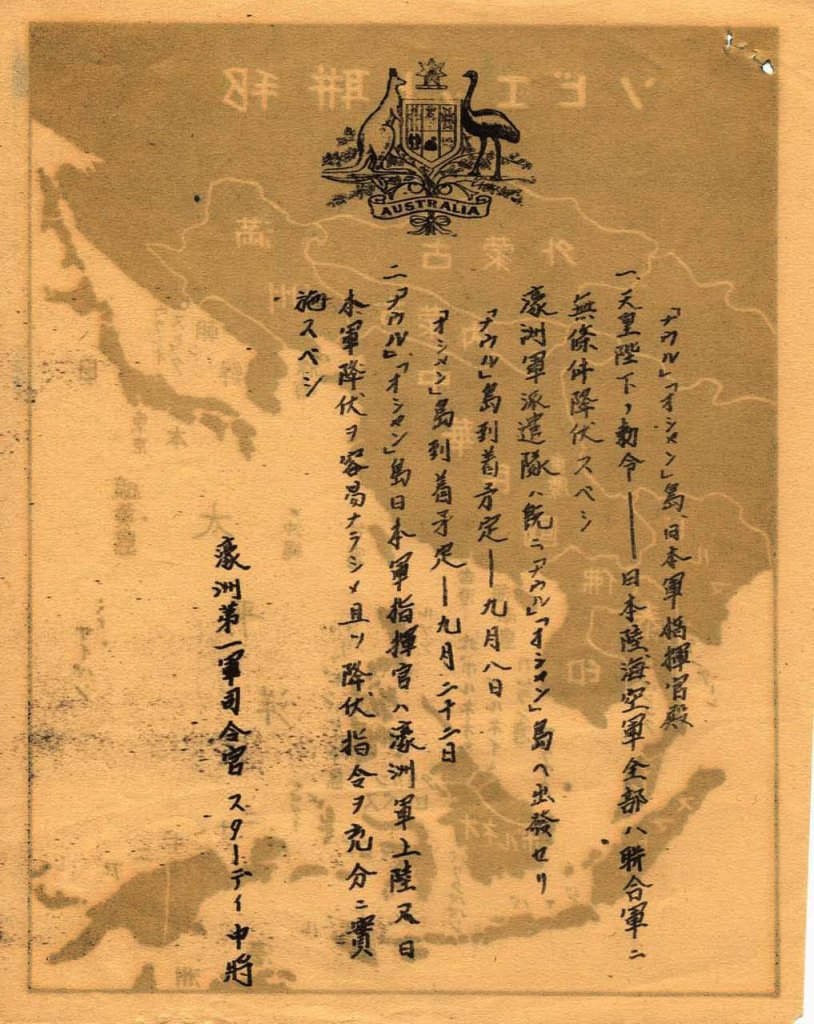 AUSTRALIA
「ナウル」「オシャン」島、日本軍指揮官殿
一、天皇陛下ノ勅令――日本陸、海、空軍全部ハ聯合軍ニ
無條件降伏スベシ
濠洲軍派遣隊ハ既ニ「ナウル」「オシャン」島ヘ出發セリ
「ナウル」島到着予定――九月八日
「オシャン」島到着予定――九月二十二日
二、「ナウル」「オシャン」島日本軍指揮官ハ濠洲軍上陸及日
本軍降伏ヲ容易ナラシメ且ツ降伏指令ヲ充分ニ實
施スベシ
濠洲第一軍司令官 スターディ中將
ソビエト聯邦
外蒙古
滿洲
朝鮮
佛印
大平洋